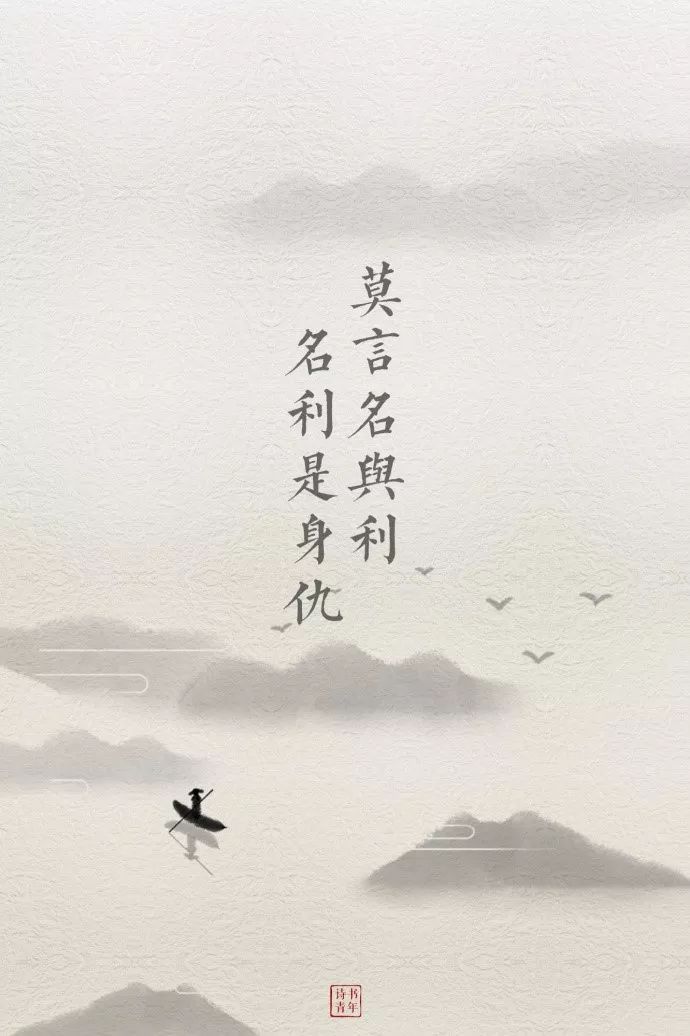 莫言名與利
名利是身仇
诗书
青年